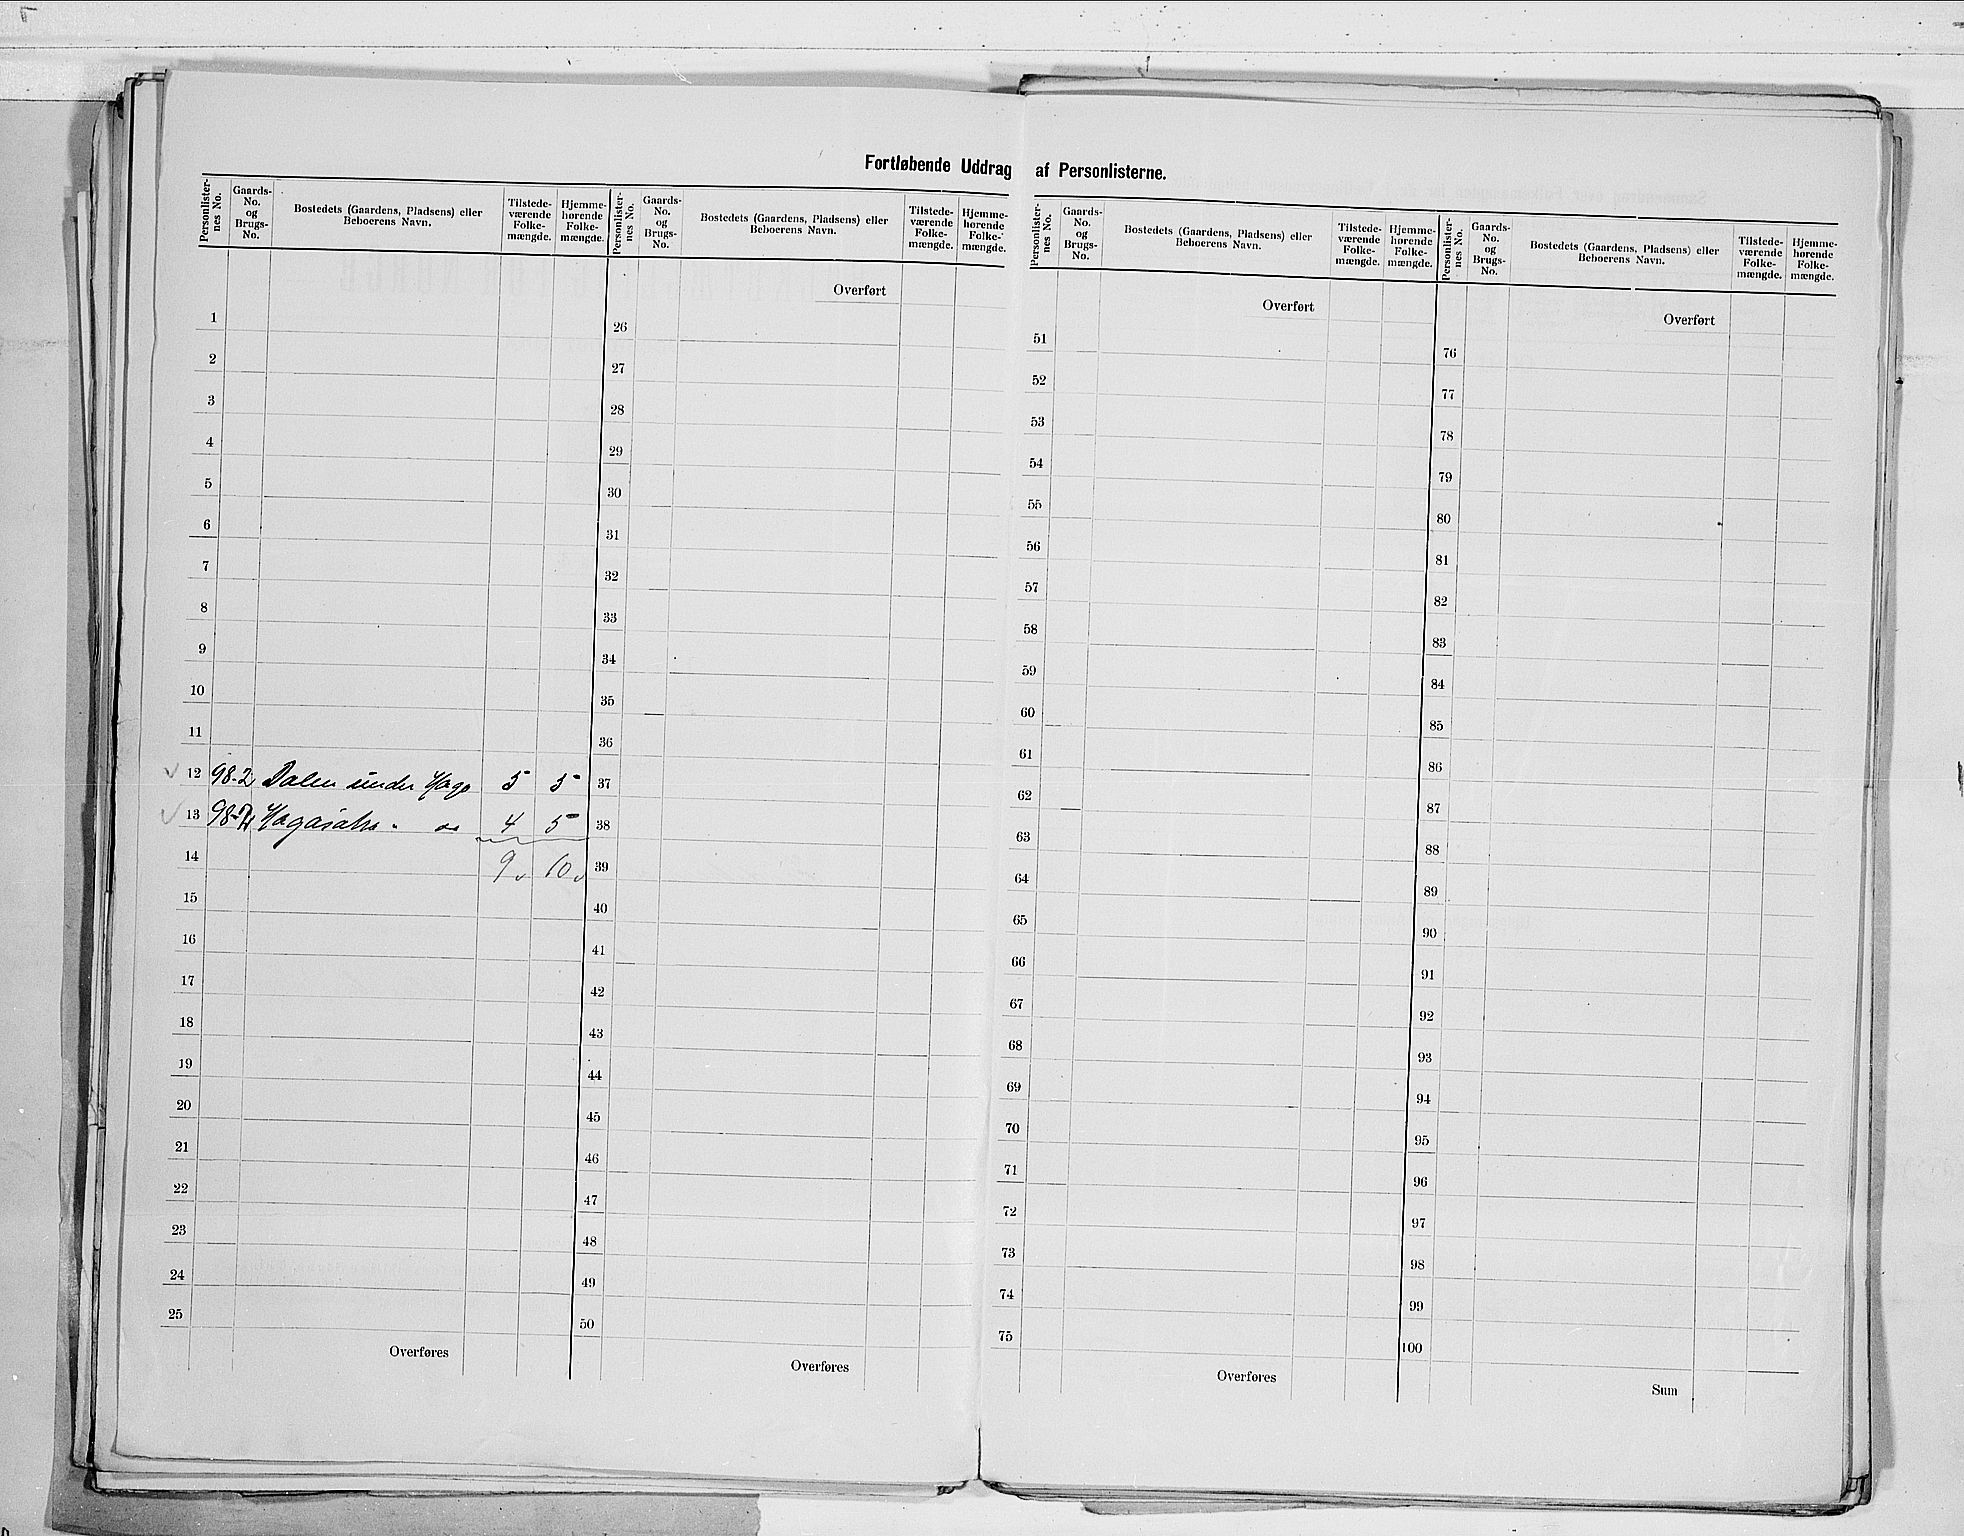 Fortløbende Uddrag af Personlisterne.
Personlister-nes No. Gaards-No. og Brugs-No. Bostedets (Gaardens, Pladsens) eller Beboerens Navn. Tilstede-værende Folke-mængde. Hjemme-hørende Folke-mængde.
1
2
3
4
5
6
7
8
9
10
11
12 98-2 Dalen under Haga 5 5
13 98- 4 5
14 9 10
15
16
17
18
19
20
21
22
23
24
25
Overføres
Personlister-nes No. Gaards-No. og Brugs-No. Bostedets (Gaardens, Pladsens) eller Beboerens Navn. Tilstede-værende Folke-mængde. Hjemme-hørende Folke-mængde.
Overført
26
27
28
29
30
31
32
33
34
35
36
37
38
39
40
41
42
43
44
45
46
47
48
49
50
Overføres
Personlister-nes No. Gaards-No. og Brugs-No. Bostedets (Gaardens, Pladsens) eller Beboerens Navn. Tilstede-værende Folke-mængde. Hjemme-hørende Folke-mængde.
Overført
51
52
53
54
55
56
57
58
59
60
61
62
63
64
65
66
67
68
69
70
71
72
73
74
75
Overføres
Personlister-nes No. Gaards-No. og Brugs-No. Bostedets (Gaardens, Pladsens) eller Beboerens Navn. Tilstede-værende Folke-mængde. Hjemme-hørende Folke-mængde.
Overført
76
77
78
79
80
81
82
83
84
85
86
87
88
89
90
91
92
93
94
95
96
97
98
99
100
Sum